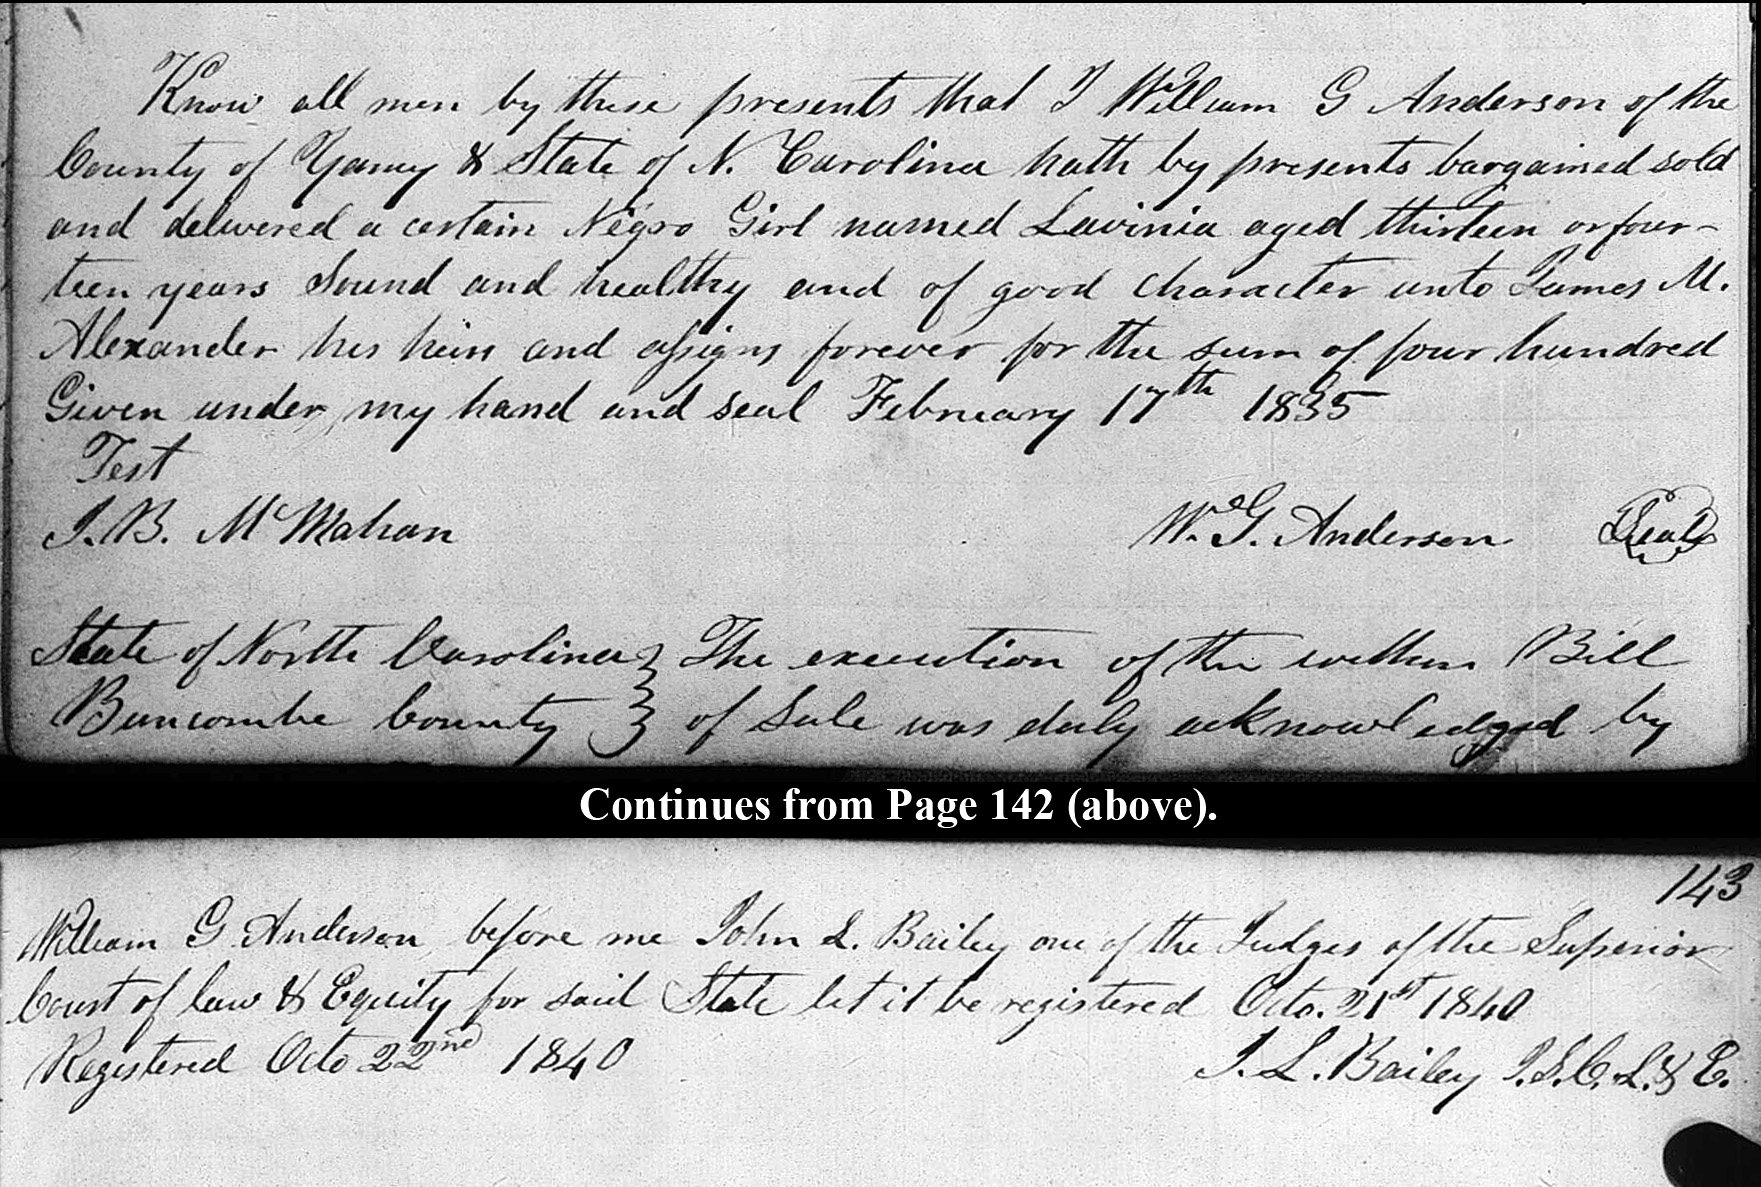 Know all men by these presents that I William G Anderson of the
County of Yancy & State of N. Carolina hath by presents bargained sold
and delivered a certain Negro Girl named Lavinia aged thirteen or four-
teen years Sound and healthy and of good character unto James M.
Alexander his heirs and assigns forever for the sum of four hundred
Given under my hand and seal February 17th 1835
Test
J. B. McMahan W. G. Anderson Seal
State of North Carolina } The execution of the within Bill
Buncombe County } of Sale was duly acknowledged by
Continues from Page 142 (above).
143
William G Anderson before me John L. Bailey one of the Judges of the Superior
Court of law & Equity for said State let it be registered Octo. 21st 1840
Registered Octo 22nd 1840 J. L. Bailey J.S.C. L. & E.